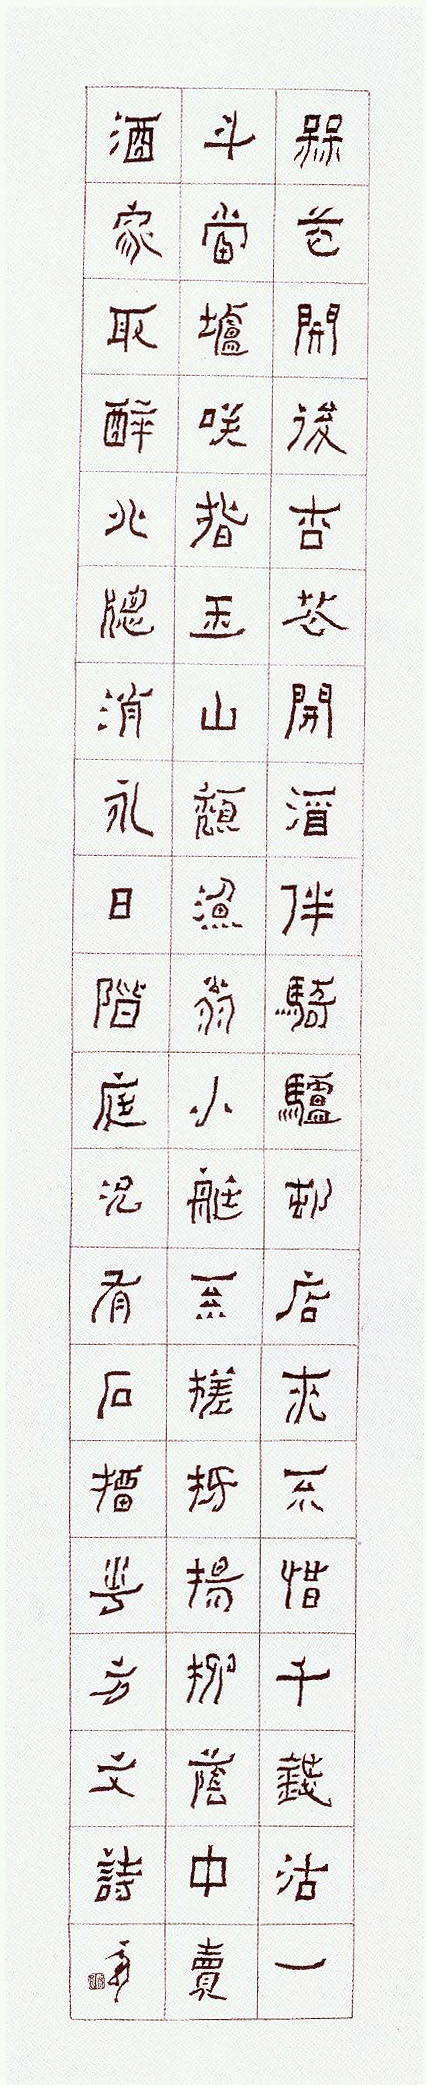 槑花開後杏花開伴騎驢邨店來不惜千錢沽一
斗當壚咲指玉山頹漁翁小艇系槎枒楊柳蔭中賣
酒家取醉北牕消永日階庭況有石榴華方文詩